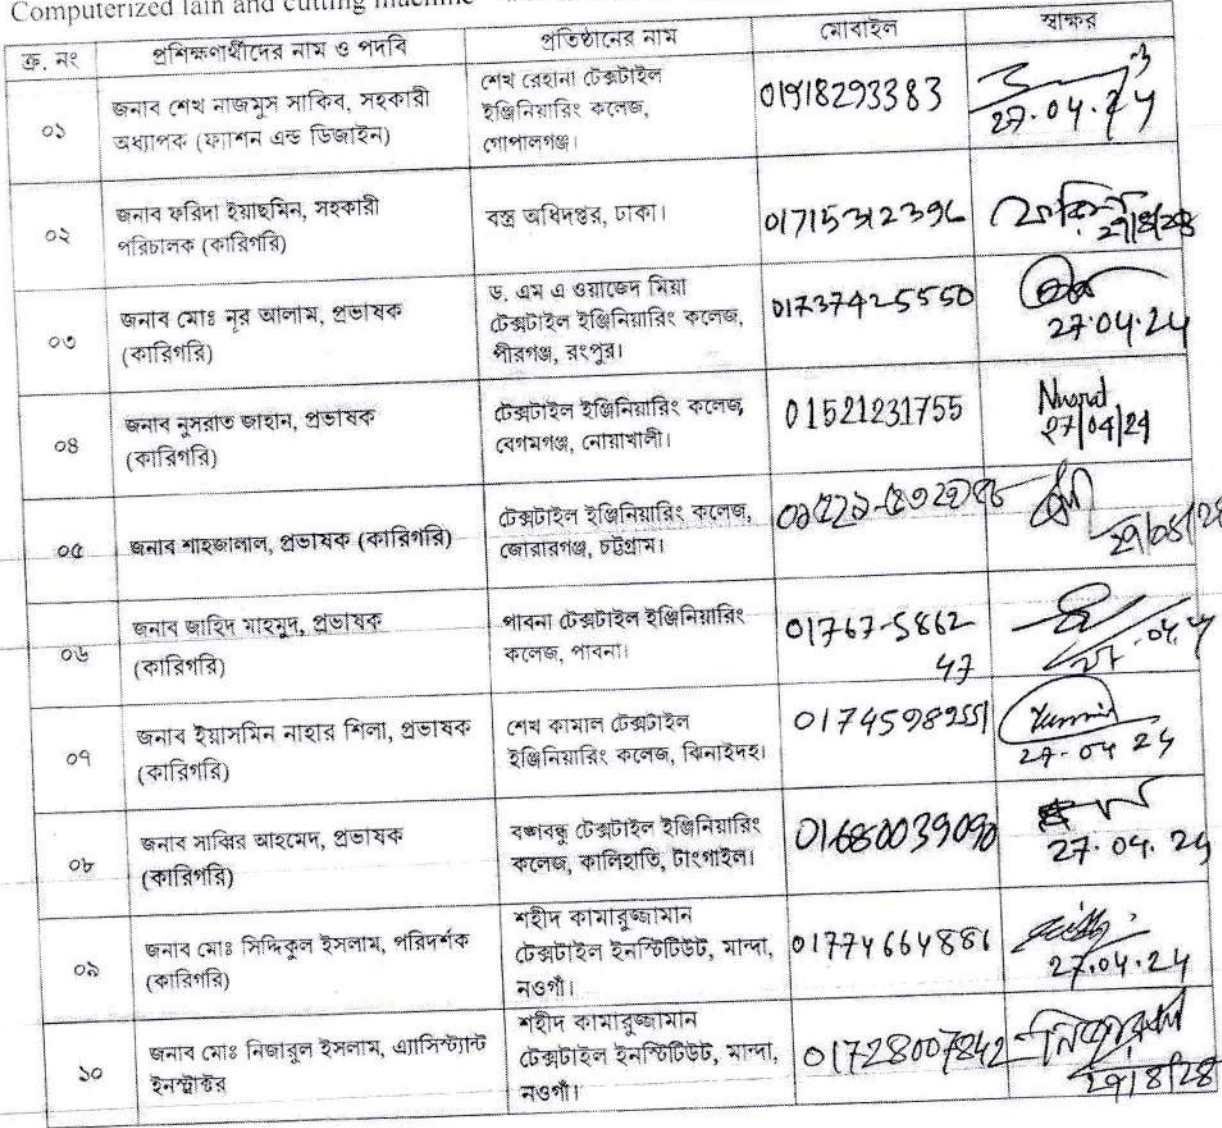 Computerized lain and cutting machine
ক্র. নং প্রশিক্ষণার্থীদের নাম ও পদবি প্রতিষ্ঠানের নাম মোবাইল স্বাক্ষর
০১ জনাব শেখ নাজমুস সাকিব, সহকারী
অধ্যাপক (ফ্যাশন এন্ড ডিজাইন)
শেখ রেহানা টেক্সটাইল
ইঞ্জিনিয়ারিং কলেজ,
গোপালগঞ্জ।
01918293383
27.04.24
০২ জনাব ফরিদা ইয়াছমিন, সহকারী
পরিচালক (কারিগরি)
বস্ত্র অধিদপ্তর, ঢাকা।
01715312396
২৭/৪/২৪
০৩ জনাব মোঃ নূর আলাম, প্রভাষক
(কারিগরি)
ড. এম এ ওয়াজেদ মিয়া
টেক্সটাইল ইঞ্জিনিয়ারিং কলেজ,
পীরগঞ্জ, রংপুর।
01737425550
27.04.24
০৪ জনাব নুসরাত জাহান, প্রভাষক
(কারিগরি)
টেক্সটাইল ইঞ্জিনিয়ারিং কলেজ,
বেগমগঞ্জ, নোয়াখালী।
01521231755
Nusrat
27/04/24
০৫ জনাব শাহজালাল, প্রভাষক (কারিগরি)
টেক্সটাইল ইঞ্জিনিয়ারিং কলেজ,
জোরারগঞ্জ, চট্টগ্রাম।
০৬ জনাব জাহিদ মাহমুদ, প্রভাষক
(কারিগরি)
পাবনা টেক্সটাইল ইঞ্জিনিয়ারিং
কলেজ, পাবনা।
01767-5862
47
27.04.24
০৭ জনাব ইয়াসমিন নাহার শিলা, প্রভাষক
(কারিগরি)
শেখ কামাল টেক্সটাইল
ইঞ্জিনিয়ারিং কলেজ, ঝিনাইদহ।
01745989551
27-04 24
০৮ জনাব সাব্বির আহমেদ, প্রভাষক
(কারিগরি)
বঙ্গবন্ধু টেক্সটাইল ইঞ্জিনিয়ারিং
কলেজ, কালিহাতি, টাংগাইল।
01680039090
27.04.24
০৯ জনাব মোঃ সিদ্দিকুল ইসলাম, পরিদর্শক
(কারিগরি)
শহীদ কামারুজ্জামান
টেক্সটাইল ইনস্টিটিউট, মান্দা,
নওগাঁ।
01774664886
27.04.24
১০ জনাব মোঃ নিজারুল ইসলাম, এ্যাসিস্ট্যান্ট
ইনস্ট্রাক্টর
শহীদ কামারুজ্জামান
টেক্সটাইল ইনস্টিটিউট, মান্দা,
নওগাঁ।
01728007842
২৭/৪/২৪